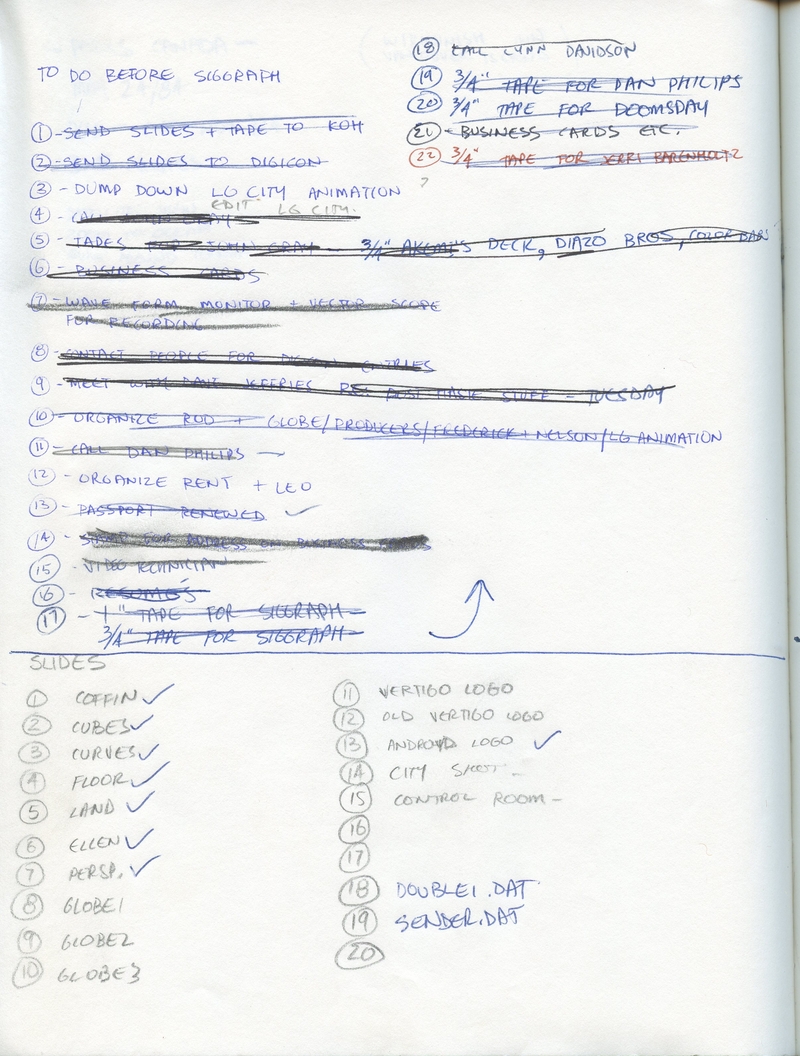 TO DO BEFORE SIGGRAPH
① - SEND SLIDES + TAPE TO KOH
② - SEND SLIDES TO DIGICON
③ - DUMP DOWN LG CITY ANIMATION
EDIT LG CITY.
④ - CALL GRAY
⑤ - TAPES FOR JOHN GRAY - 3/4" AKEMI'S DECK, DIAZO BROS, COLOR BARS
⑥ - BUSINESS CARDS
⑦ - WAVE FORM MONITOR + VECTOR SCOPE
FOR RECORDING
⑧ - CONTACT PEOPLE FOR ENTRIES
⑨ - MEET DAVE JEFFRIES RE: STUFF - TUESDAY
⑩ - ORGANIZE ROD + GLOBE/PRODUCERS/FREDERICK + NELSON/LG ANIMATION
⑪ - CALL DAN PHILIPS -
⑫ - ORGANIZE RENT + LEO
⑬ - PASSPORT RENEWED ✓
⑭ - STAMP FOR ADDRESS ON BUSINESS CARDS
⑮ - VIDEO TECHNICIAN
⑯ - RESUMÉS
⑰ - 1" TAPE FOR SIGGRAPH
3/4" TAPE FOR SIGGRAPH
⑱ - CALL LYNN DAVIDSON
⑲ 3/4" TAPE FOR DAN PHILIPS
⑳ 3/4" TAPE FOR DOOMSDAY
㉑ - BUSINESS CARDS ETC.
㉒ 3/4" TAPE FOR JERRI BARENHOLTZ
?
SLIDES
① COFFIN ✓
② CUBES ✓
③ CURVES ✓
④ FLOOR ✓
⑤ LAND ✓
⑥ ELLEN ✓
⑦ PERSP. ✓
⑧ GLOBE1
⑨ GLOBE2
⑩ GLOBE3
⑪ VERTIGO LOGO
⑫ OLD VERTIGO LOGO
⑬ ANDROYD LOGO ✓
⑭ CITY SHOT -
⑮ CONTROL ROOM -
⑯
⑰
⑱ DOUBLE1.DAT
⑲ SENDER.DAT
⑳